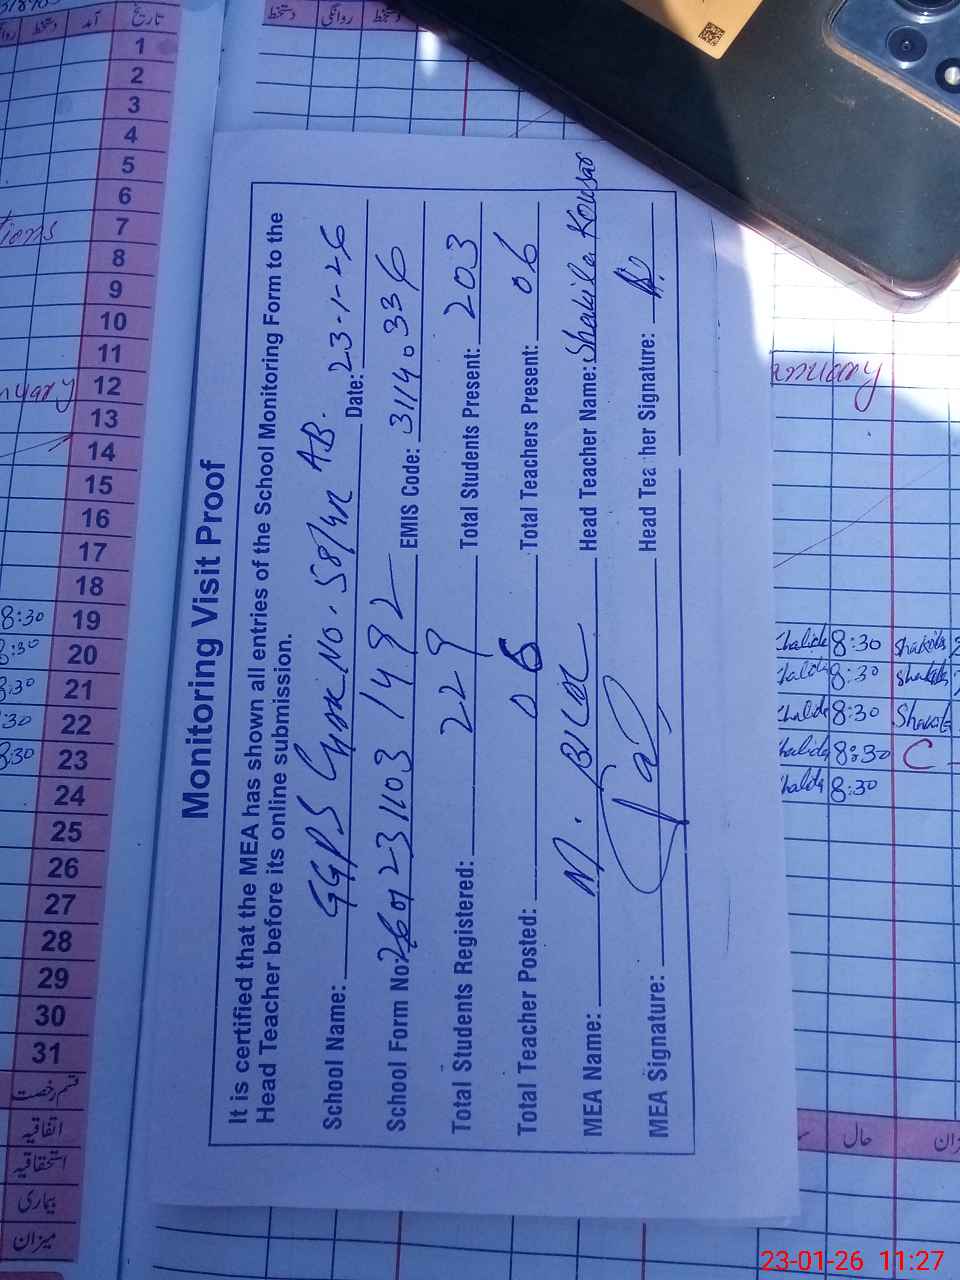 Monitoring Visit Proof
It is certified that the MEA has shown all entries of the School Monitoring Form to the
Head Teacher before its online submission.
School Name: GGPS Chak No. 58/4R AB. Date: 23-1-26
School Form No: 2601231103 1492 EMIS Code: 31140336
Total Students Registered: 229 Total Students Present: 203
Total Teacher Posted: 06 Total Teachers Present: 06
MEA Name: M. Head Teacher Name: Shakila Kousar
MEA Signature: Head Teacher Signature:
تاریخ آمد دستخط
1
2
3
4
5
6
7
8
9
10
11
12
13
14
15
16
17
18
19 8:30
20 8:30
21 8:30
22 :30
23 8:30
24
25
26
27
28
29
30
31
قسم رخصت
اتفاقیہ
استحقاقیہ
بیماری
میزان
دستخط روانگی دستخط
8:30 Shakila
8:30 Shakila
8:30
8:30 C
8:30
حال
23-01-26 11:27